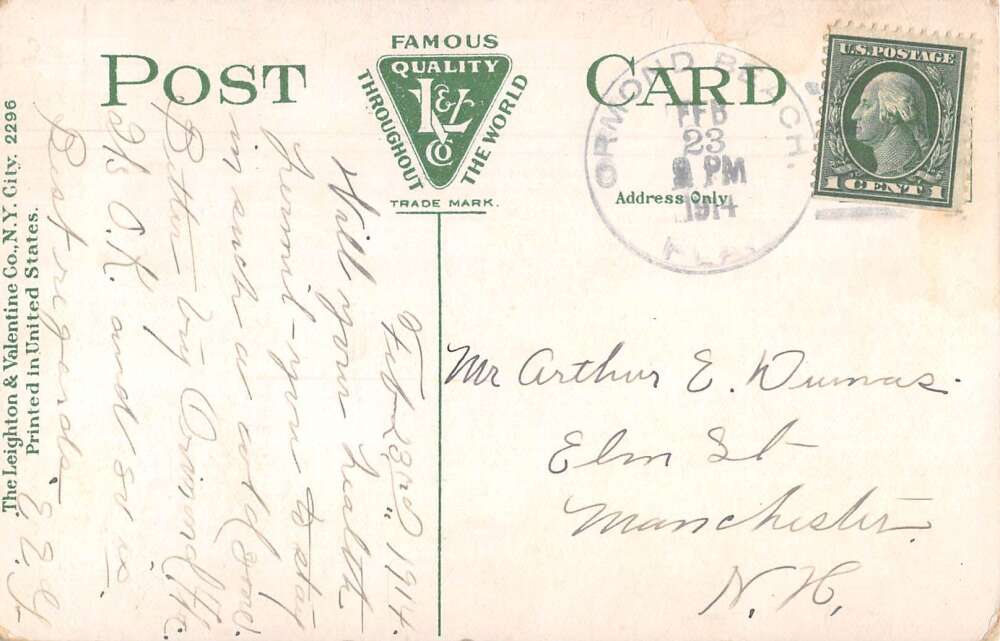 POST CARD
FAMOUS
QUALITY
THROUGHOUT
THE WORLD
L & V
CO
TRADE MARK.
Address Only
U.S. POSTAGE
1 CENT 1
ORMOND BEACH,
FEB
23
PM
1914
FLA.
The Leighton & Valentine Co., N.Y. City. 2296
Printed in United States.
Feb 23rd, 1914.
Will your health
permit - you to stay
in such a cold
Better try Ormond
It's O.K. and so is
Best regards.
Mr Arthur E. Dumas.
Elm St
Manchester
N. H.